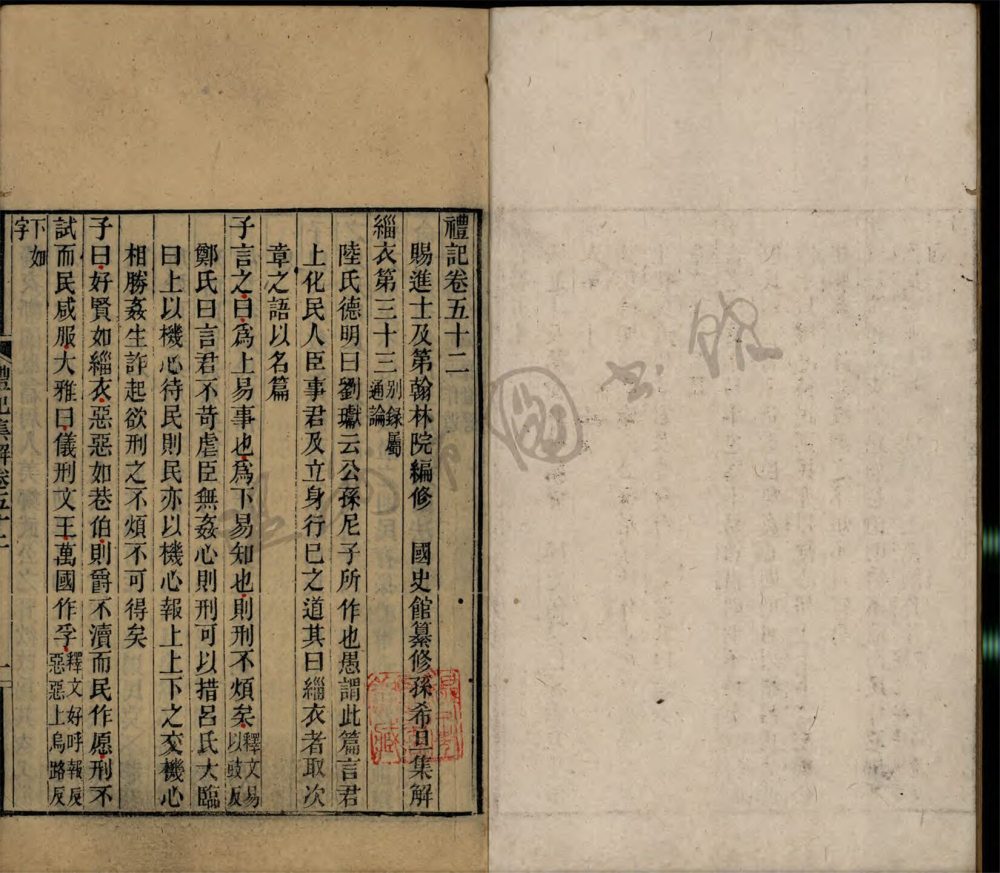 禮記卷五十二
賜進士及第翰林院編修 國史館纂修孫希旦集解
緇衣第三十三別錄屬通論
陸氏德明曰劉瓛云公孫尼子所作也愚謂此篇言君
上化民人臣事君及立身行已之道其曰緇衣者取次
章之語以名篇
子言之曰爲上易事也爲下易知也則刑不煩矣釋文易以豉反
鄭氏曰言君不苛虐臣無姦心則刑可以措呂氏大臨
曰上以機心待民則民亦以機心報上上下之交機心
相勝姦生詐起欲刑之不煩不可得矣
子曰好賢如緇衣惡惡如巷伯則爵不瀆而民作愿刑不
試而民咸服大雅曰儀刑文王萬國作孚釋文好呼報反惡惡上烏路反
下如字
禮記集解卷五十二